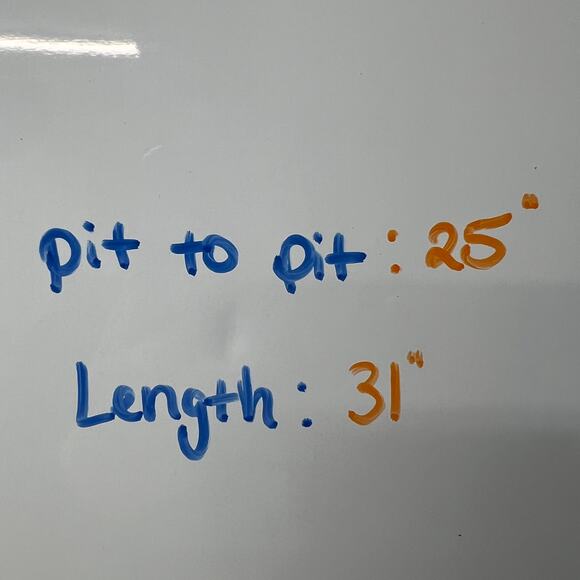 pit to pit: 25"
Length: 31"